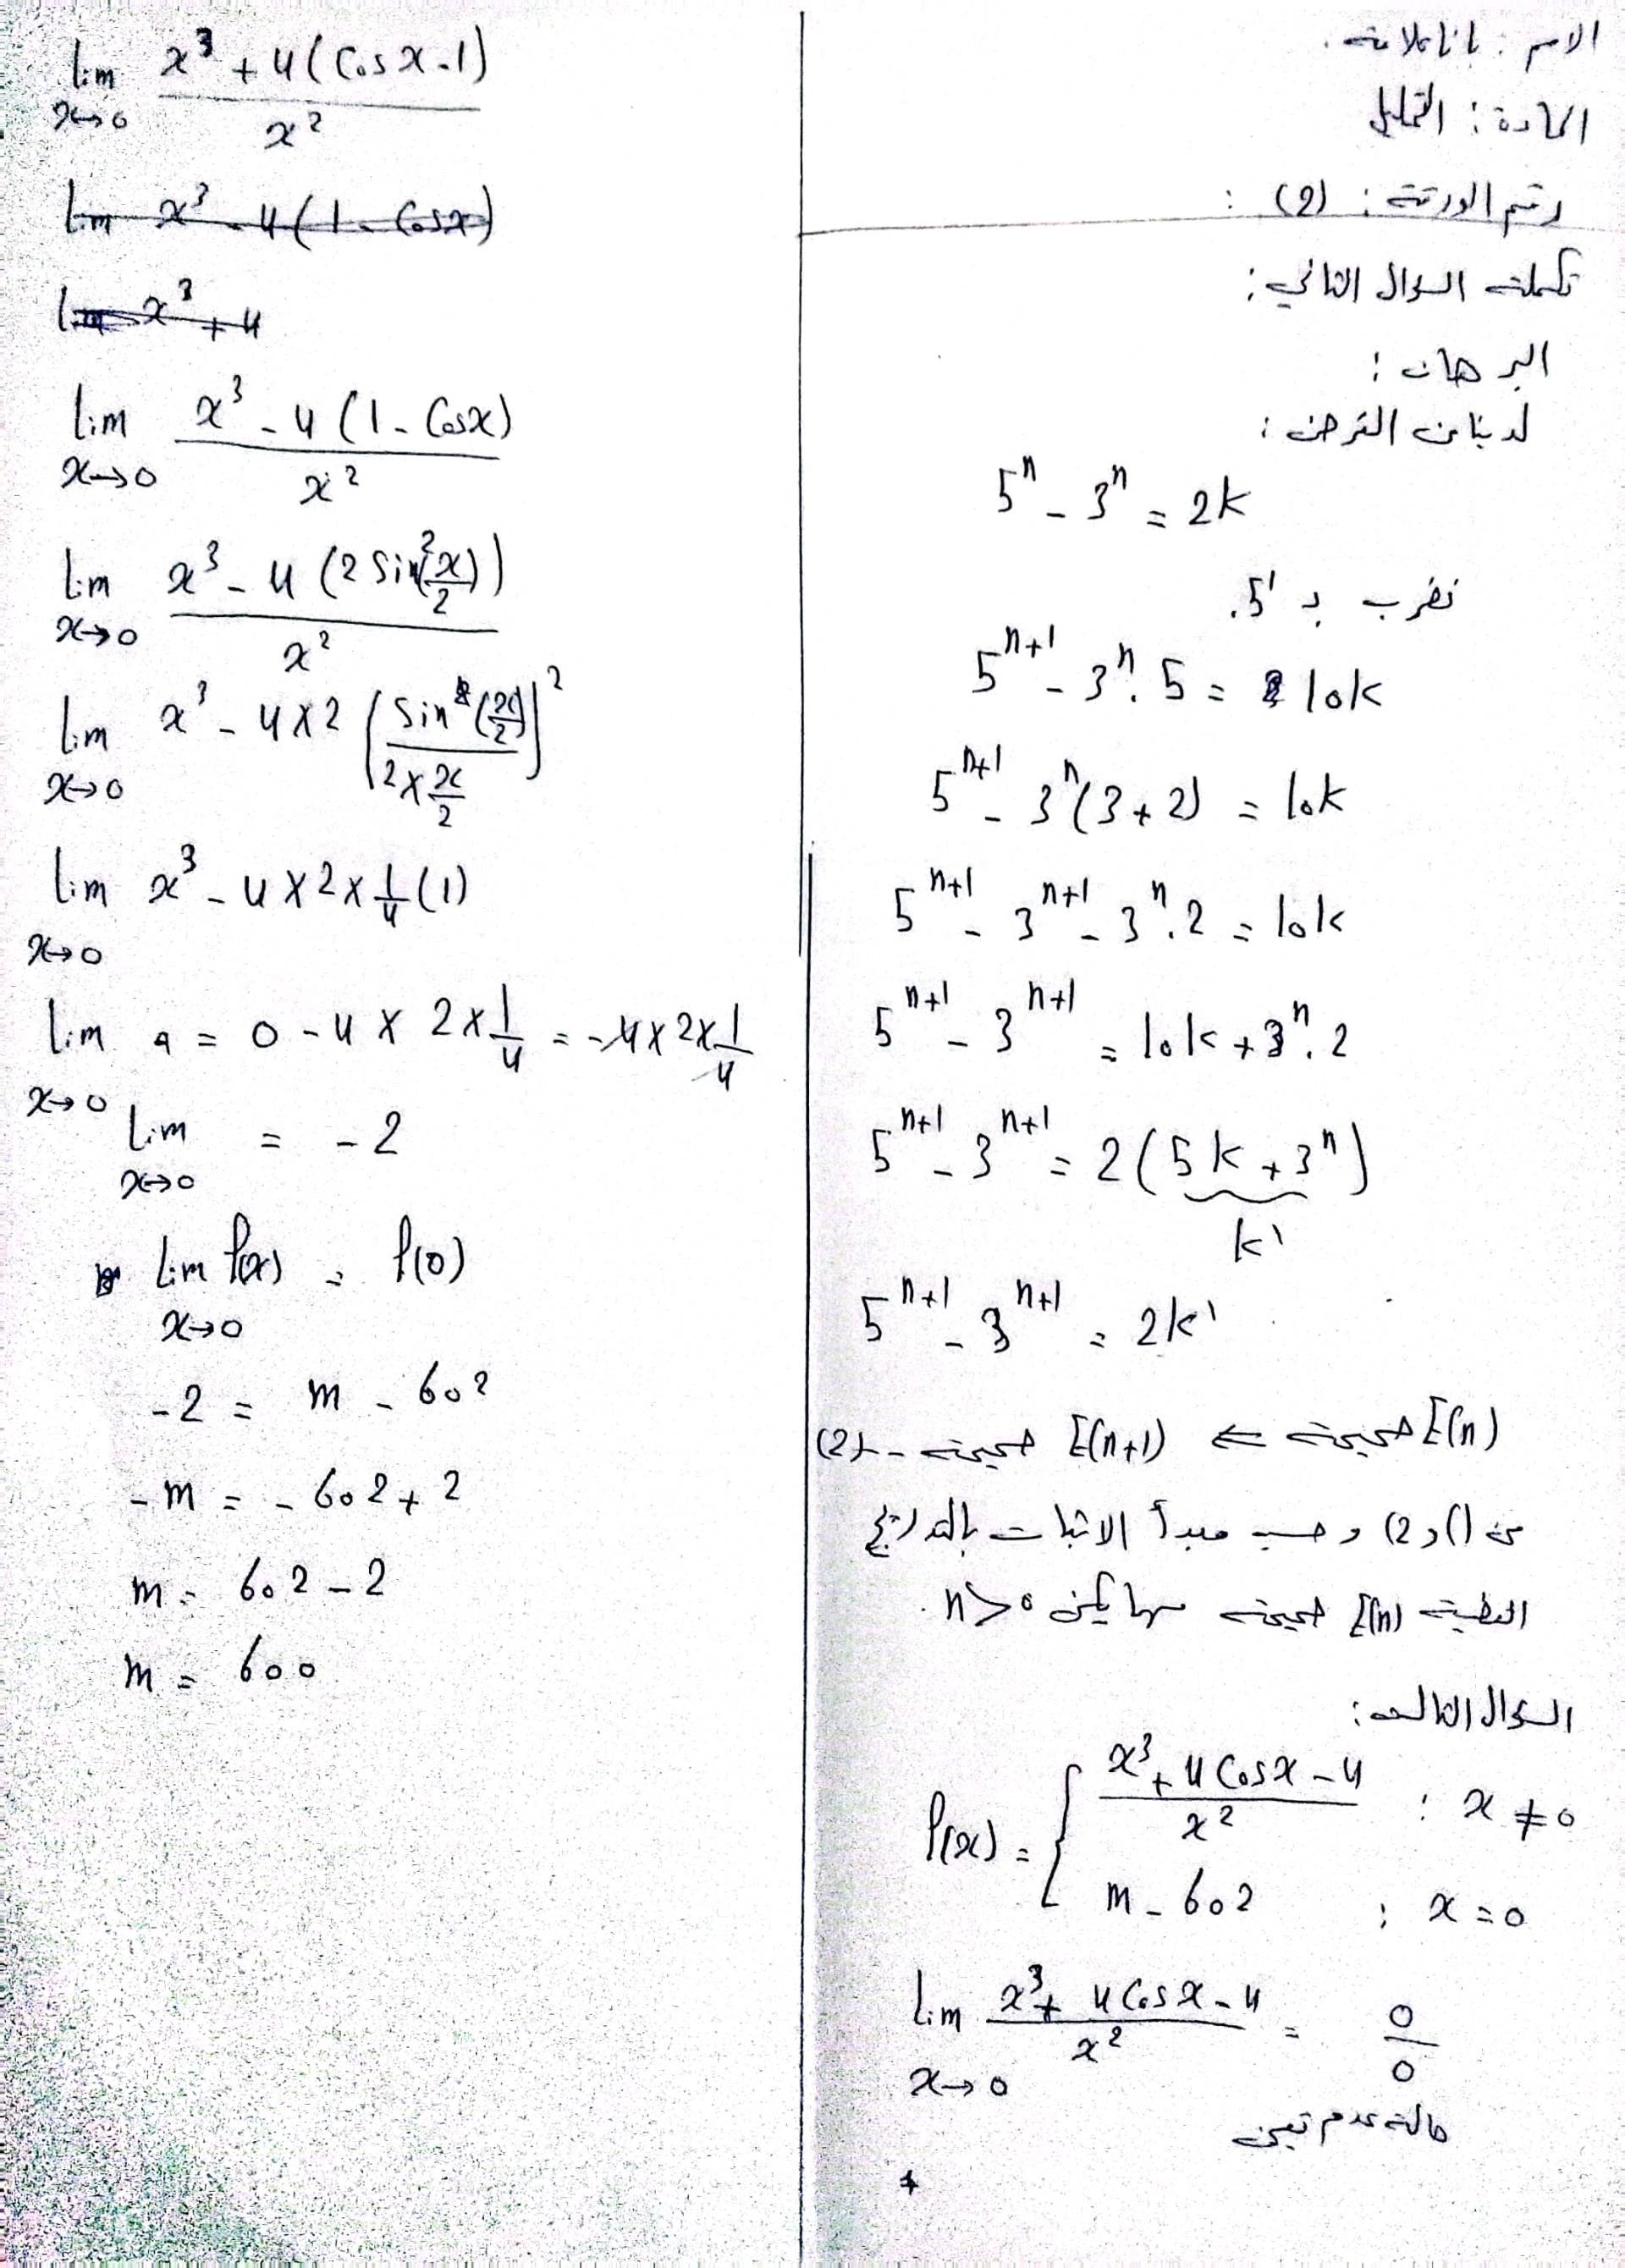 الاسم : يانا علامة .
المادة : التحليل
رقم الورقة : (2) :
تكملة السؤال الثاني :
البرهان :
لدينا من الفرض :
5^n - 3^n = 2k
نضرب بـ 5^1 .
5^{n+1} - 3^n . 5 = 10k
5^{n+1} - 3^n (3+2) = 10k
5^{n+1} - 3^{n+1} - 3^n . 2 = 10k
5^{n+1} - 3^{n+1} = 10k + 3^n . 2
5^{n+1} - 3^{n+1} = 2(5k + 3^n)
k'
5^{n+1} - 3^{n+1} = 2k'
E(n) صحيحة ⇐ E(n+1) صحيحة -- (2)
من 1) و 2) و حسب مبدأ الاثبات بالتدريج
القضية E(n) صحيحة مهما يكن n>0 .
السؤال الثالث :
f(x) = { (x^3 + 4 Cos x - 4) / x^2 : x ≠ 0
m - 602 ; x = 0
lim x→0 (x^3 + 4 Cos x - 4) / x^2 = 0/0
حالة عدم تعيين
lim x→0 (x^3 + 4(Cos x - 1)) / x^2
lim x^3 - 4(1 - Cos x)
lim x^3 + 4
lim x→0 (x^3 - 4(1 - Cos x)) / x^2
lim x→0 (x^3 - 4(2 Sin^2(x/2))) / x^2
lim x→0 x^3 - 4×2 (Sin(x/2) / (2×x/2))^2
lim x→0 x^3 - 4×2×1/4 (1)
lim x→0 = 0 - 4×2×1/4 = -4×2×1/4
lim x→0 = -2
lim x→0 f(x) = f(0)
-2 = m - 602
-m = -602 + 2
m = 602 - 2
m = 600